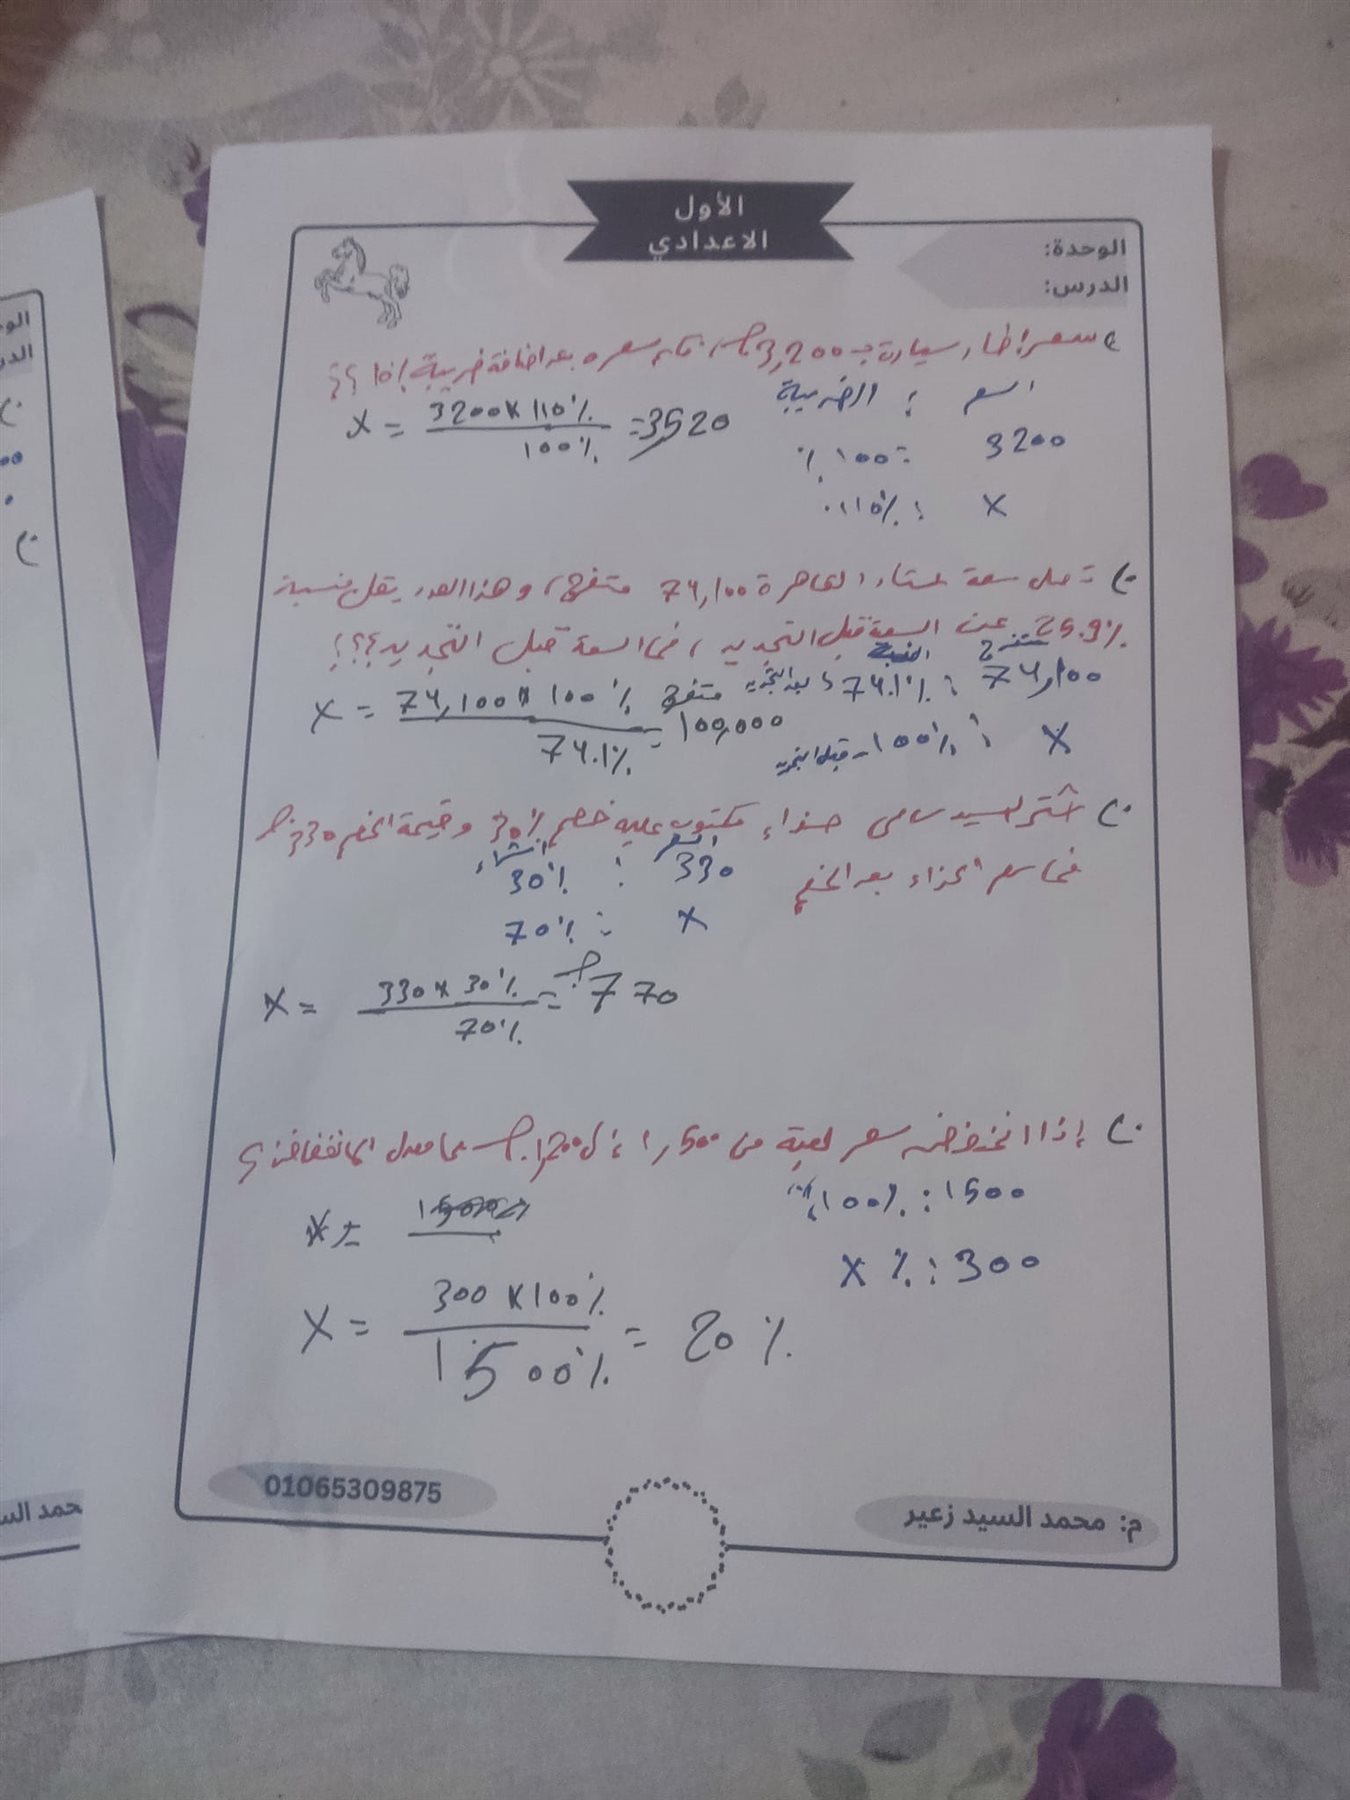 الأول
الاعدادي
الوحدة:
الدرس:
سعر إطار سيارة بـ 3,200 بعد اضافة ضريبة 10٪ ؟؟
السعر : الضريبة
3200 : 100٪
X : 110٪
X = 3200 x 110٪ / 100٪ = 3,520
تصل سعة ستاد القاهرة 74,100 متفرج، وهذا العدد يقل بنسبة
25.9٪ عن السعة قبل التجديد، فما السعة قبل التجديد؟؟؟
متفرج النسبة
74,100 : 74.1٪ بعد التجديد
X : 100٪ قبل التجديد
X = 74,100 x 100٪ / 74.1٪ = 100,000 متفرج
اشترى سيد سامى حذاء مكتوب عليه خصم 30٪ وقيمة الخصم 330 ج
فما سعر الحذاء بعد الخصم
السعر
330 : 30٪
X : 70٪
X = 330 x 30٪ / 70٪ = 770 ج
إذا انخفض سعر لعبة من 1,500 إلى 1,200 ج ما معدل الانخفاض؟
1500 : 100٪
300 : X ٪
X =
X = 300 x 100٪ / 1500٪ = 20 ٪
01065309875
م: محمد السيد زعير